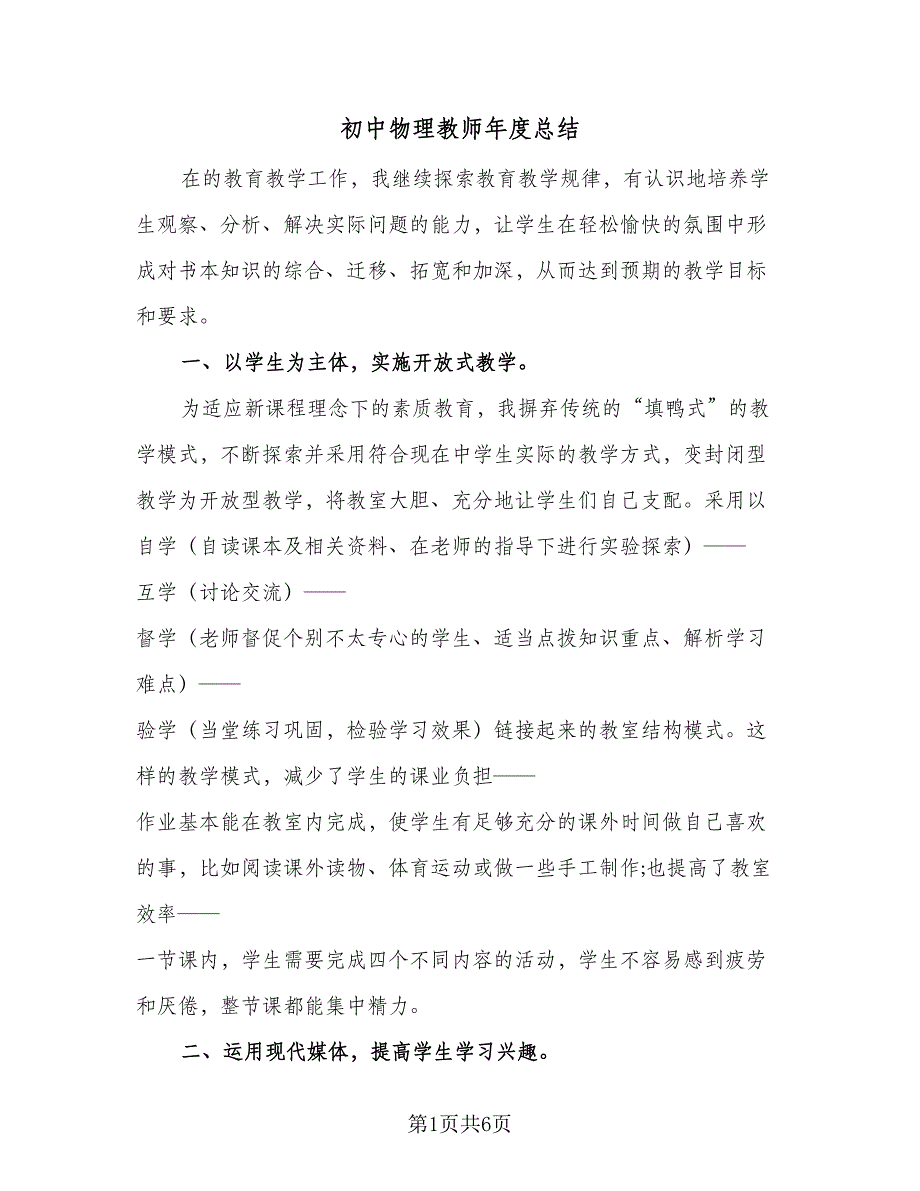 初中物理教师年度总结
在的教育教学工作，我继续探索教育教学规律，有认识地培养学
生观察、分析、解决实际问题的能力，让学生在轻松愉快的氛围中形
成对书本知识的综合、迁移、拓宽和加深，从而达到预期的教学目标
和要求。
一、以学生为主体，实施开放式教学。
为适应新课程理念下的素质教育，我摒弃传统的“填鸭式”的教
学模式，不断探索并采用符合现在中学生实际的教学方式，变封闭型
教学为开放型教学，将教室大胆、充分地让学生们自己支配。采用以
自学（自读课本及相关资料、在老师的指导下进行实验探索）——
互学（讨论交流）——
督学（老师督促个别不太专心的学生、适当点拨知识重点、解析学习
难点）——
验学（当堂练习巩固，检验学习效果）链接起来的教室结构模式。这
样的教学模式，减少了学生的课业负担——
作业基本能在教室内完成，使学生有足够充分的课外时间做自己喜欢
的事，比如阅读课外读物、体育运动或做一些手工制作;也提高了教室
效率——
一节课内，学生需要完成四个不同内容的活动，学生不容易感到疲劳
和厌倦，整节课都能集中精力。
二、运用现代媒体，提高学生学习兴趣。
第1页共6页